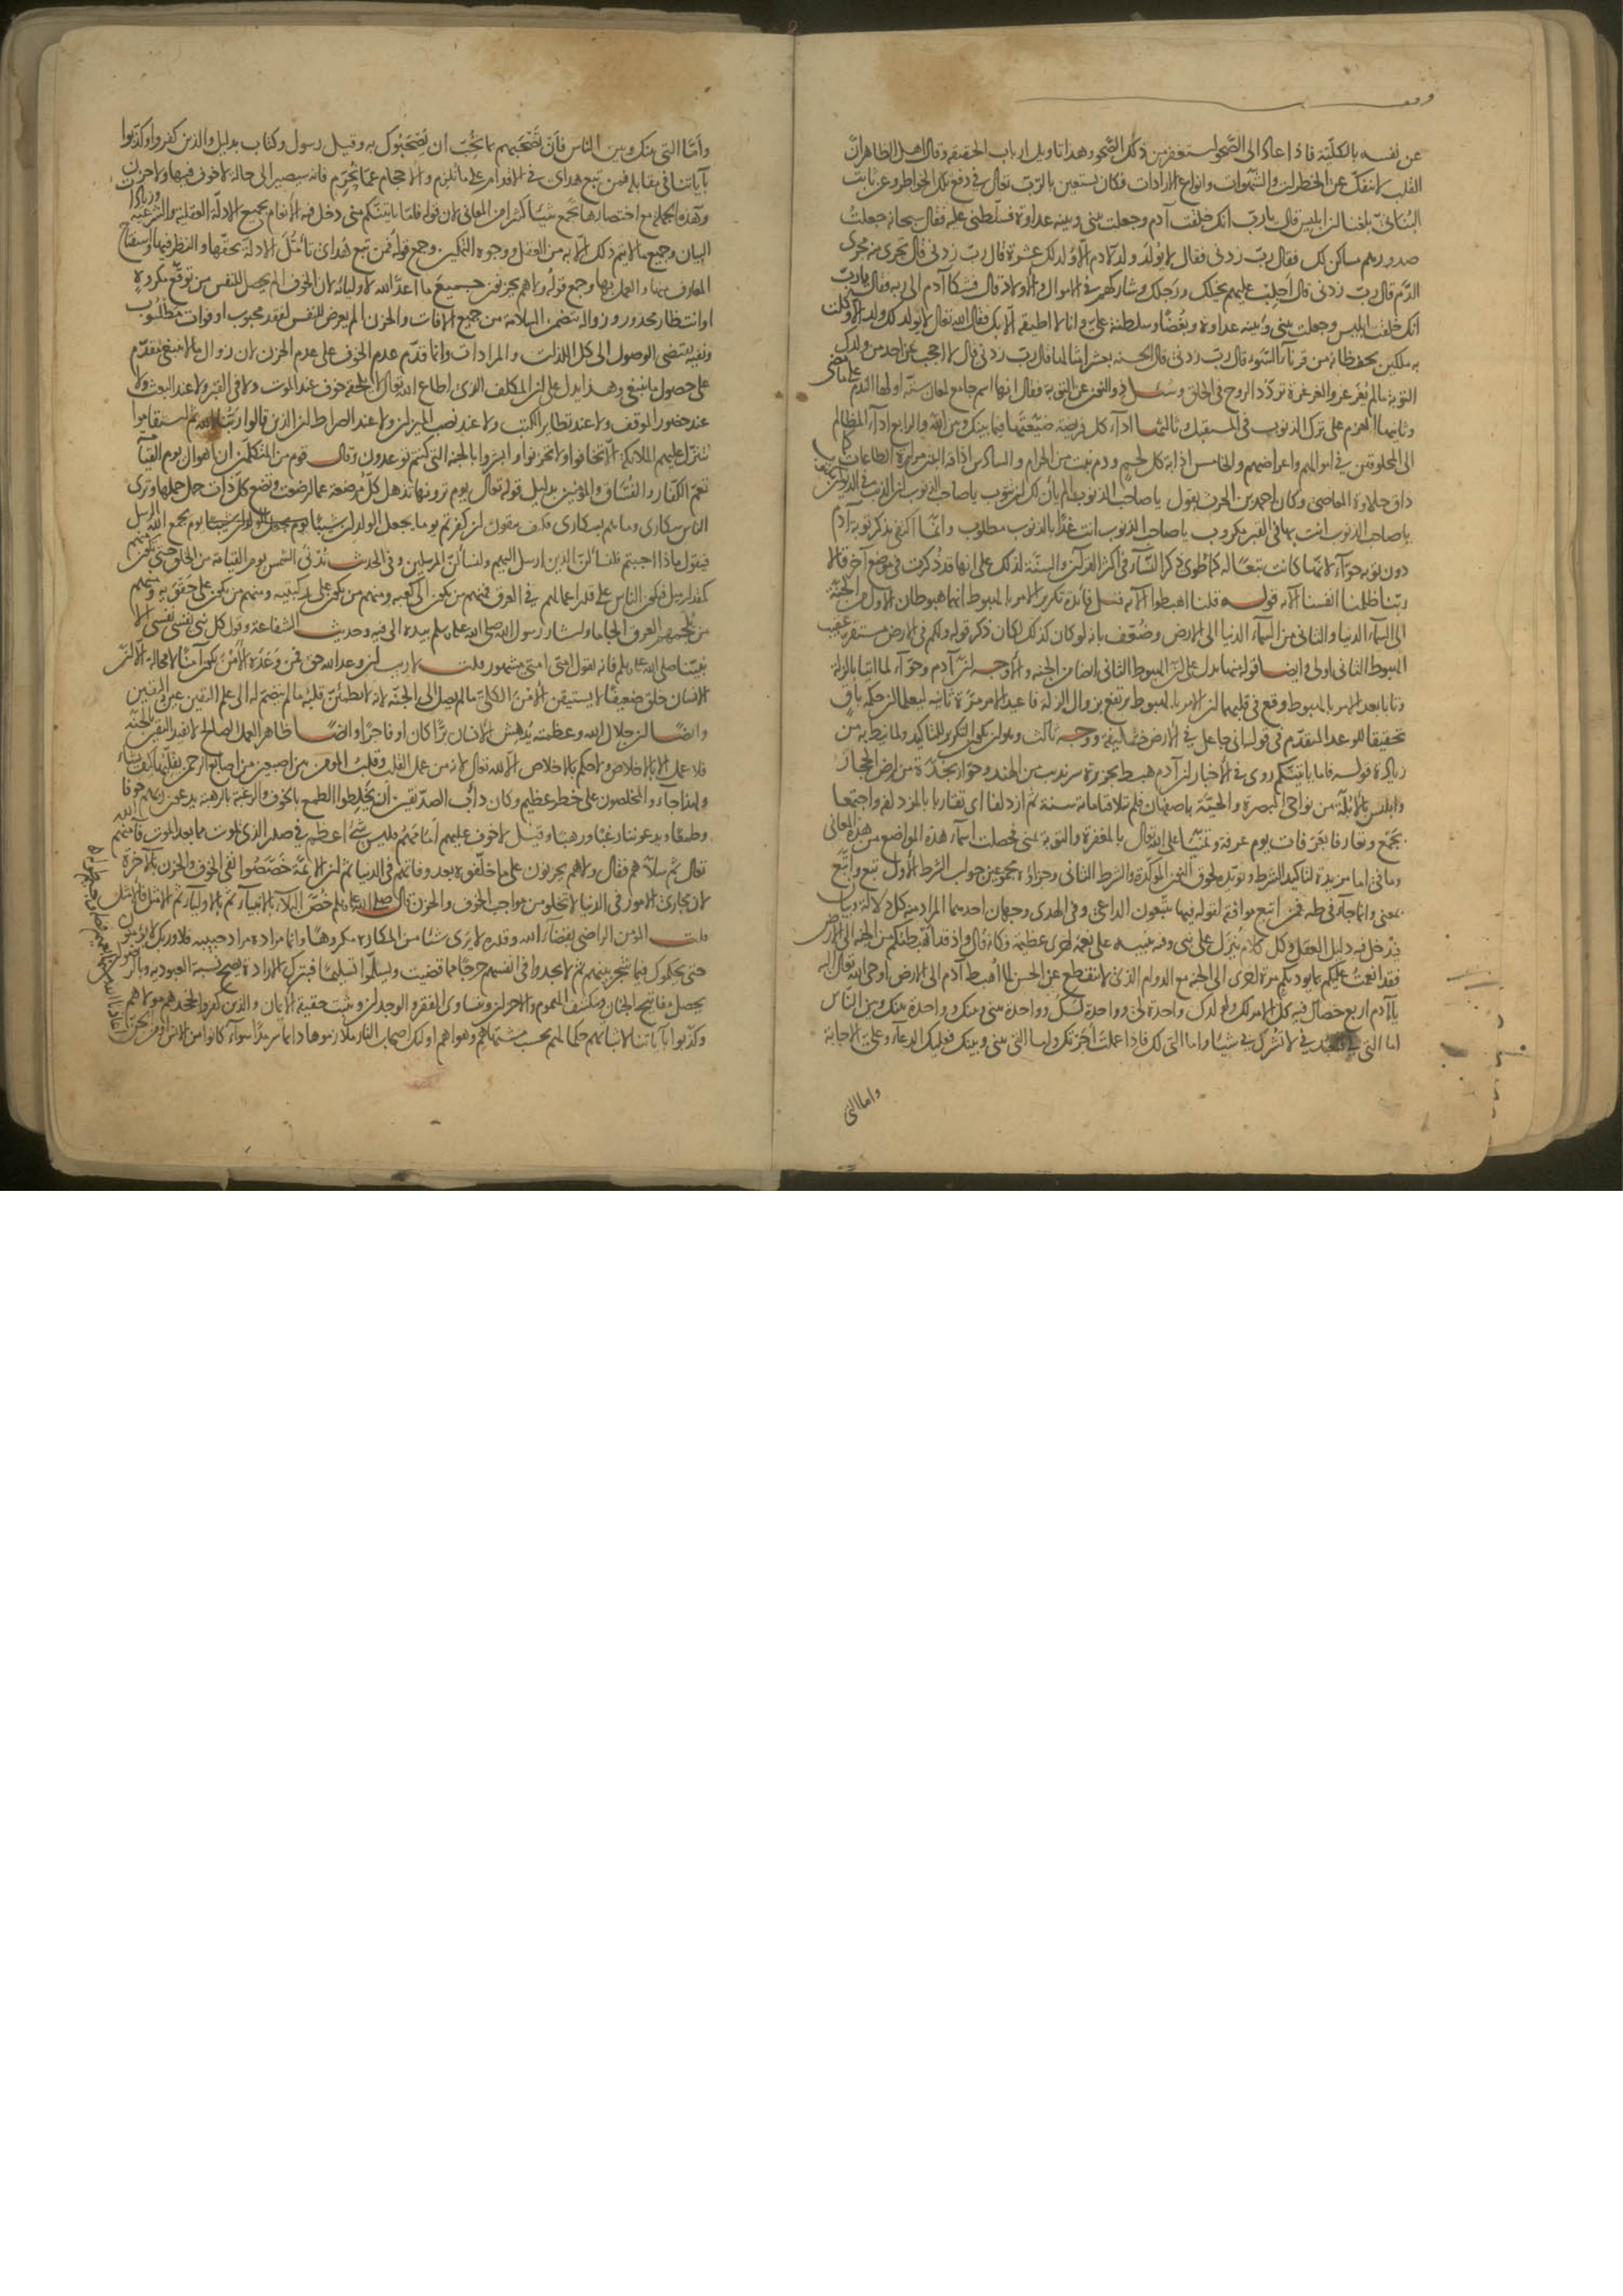 وقف
عن نفسه بالكلية فاذا عاد الى الصحو استغفر من ذلك الصحو وهذا تاويل ارباب الحقيقة وقال اهل الظاهر ان
القلب لا ينفك عن الخطرات والشهوات وانواع الارادات فكان يستعين بالرب تعالى في دفع تلك الخواطر وعن ثابت
البناني بلغنا ان ابليس قال يا رب انك خلقت آدم وجعلت بيني وبينه عداوة فسلطني عليه فقال سبحانه جعلت
صدورهم مساكن لك فقال رب زدني فقال لا يولد ولد لآدم الا ولد لك عشرة قال رب زدني قال تجري منه مجرى
الدم قال رب زدني قال اجلب عليهم بخيلك ورجلك وشاركهم في الاموال والاولاد قال فشكا آدم الى ربه فقال يا رب
انك خلقت ابليس وجعلت بيني وبينه عداوة وبغضا وسلطته علي وانا لا اطيقه الا بك فقال الله تعالى لا يولد لك ولد الا وكلت
به ملكين يحفظانه من قرناء السوء قال رب زدني قال الحسنة بعشر امثالها قال رب زدني قال لا احجب عن احد من ولدك
التوبة ما لم يغرغر والغرغرة تردد الروح في الحلق وسئل ذو النون عن التوبة فقال انها اسم جامع لمعان ستة اولها الندم على ما مضى
وثانيها العزم على ترك الذنوب في المستقبل وثالثها اداء كل فريضة ضيعتها فيما بينك وبين الله والرابع اداء المظالم
الى المخلوقين في اموالهم واعراضهم والخامس اذابة كل لحم ودم نبت من الحرام والسادس اذاقة البدن مرارة الطاعات كما
ذاق حلاوة المعاصي وكان احمد بن الحرث يقول يا صاحب الذنوب الم يأن لك ان تتوب يا صاحب الذنوب ان الذنب في الديوان مكتوب
يا صاحب الذنوب انت بها في القبر مكروب يا صاحب الذنوب انت غدا بالذنوب مطلوب وانما اكتفي بذكر توبة آدم
دون توبة حواء لانها كانت تبعا له كما طوى ذكر النساء في اكثر القرآن والسنة لذلك على انها قد ذكرت في موضع آخر قالا
ربنا ظلمنا انفسنا الآية قوله قلنا اهبطوا الآية قيل فائدة تكرير الامر بالهبوط انهما هبوطان الاول من الجنة
الى السماء الدنيا والثاني من السماء الدنيا الى الارض وضعف بانه لو كان كذلك لكان ذكر قوله ولكم في الارض مستقر عقيب
الهبوط الثاني اولى وايضا قوله منها يدل على ان الهبوط الثاني ايضا من الجنة والاوجه ان آدم وحواء لما اتيا بالزلة
وتابا بعد الامر بالهبوط وقع في قلبهما ان الامر بالهبوط يرتفع بزوال الزلة فاعيد الامر مرة ثانية ليعلما ان حكمه باق
تحقيقا للوعد المتقدم في قوله اني جاعل في الارض خليفة ووجه ثالث وهو ان يكون التكرير للتاكيد ولما نيط به من
زيادة قوله فاما ياتينكم روي في الاخبار ان آدم هبط بجزيرة سرنديب من الهند وحواء بجدة من ارض الحجاز
وابليس بالابلة من نواحي البصرة والحية باصفهان فلم يتلاقيا مائة سنة ثم ازدلفا اي تقاربا بالمزدلفة واجتمعا
بجمع وتعارفا بعرفات يوم عرفة وتمنيا على الله تعالى بالمغفرة والتوبة بمنى فحصلت اسماء هذه المواضع من هذه المعاني
وما في اما مزيدة لتاكيد الشرط ويؤيده لحوق النون المؤكدة والشرط الثاني وجزاؤه مجموعين جواب الشرط الاول تبع واتبع
بمعنى وانما جاء في طه فمن اتبع موافقة لقوله فيها يتبعون الداعي وفي الهدى وجهان احدهما المراد منه كل دلالة وبيان
فيدخل فيه دليل العقل وكل كلام ينزل على نبي وفيه تنبيه على نعمة اخرى عظيمة وكانه قال واذ قد اهبطتكم من الجنة الى الارض
فقد انعمت عليكم بما يؤديكم مرة اخرى الى الجنة مع الدوام الذي لا ينقطع عن الحسن لما اهبط آدم الى الارض اوحى الله تعالى اليه
يا آدم اربع خصال فيها كل الامر لك ولولدك واحدة لي وواحدة لك وواحدة بيني وبينك وواحدة بينك وبين الناس
اما التي لي فتعبدني لا تشرك بي شيئا واما التي لك فاذا عملت اجرتك واما التي بيني وبينك فعليك الدعاء وعلي الاجابة
واما التي
واما التي بينك وبين الناس فان تصحبهم بما تحب ان يصحبوك به وقيل رسول وكتاب بدليل والذين كفروا وكذبوا
بآياتنا في مقابلة فمن تبع هداي في الاقدام على ما يلزم والاحجام عما يحرم فانه سيصير الى حالة لا خوف فيها ولا حزن
وهذه الجملة مع اختصارها تجمع شيئا كثيرا من المعاني لان قوله فاما ياتينكم مني دخل فيه الانعام بجميع الادلة العقلية والشرعية وزيادات
البيان وجميع ما لا يتم ذلك الا به من العقل ووجوه التمكين وجمع قوله فمن تبع هداي تأمل الادلة بحقها والنظر فيها واستنتاج
المعارف منها والعمل بها وجمع قوله ولا هم يحزنون جميع ما اعد الله لاوليائه لان الخوف الم يحصل للنفس من توقع مكروه
او انتظار محذور وزواله يتضمن السلامة من جميع الآفات والحزن الم يعرض للنفس لفقد محبوب او فوات مطلوب
ونفيه يقتضي الوصول الى كل اللذات والمرادات وانما قدم عدم الخوف على عدم الحزن لان زوال ما لا ينبغي مقدم
على حصول ما ينبغي وهذا يدل على ان المكلف الذي اطاع الله تعالى لا يلحقه خوف عند الموت ولا في القبر ولا عند البعث ولا
عند حضور الموقف ولا عند تطاير الكتب ولا عند نصب الميزان ولا عند الصراط ان الذين قالوا ربنا الله ثم استقاموا
تتنزل عليهم الملائكة الا تخافوا ولا تحزنوا وابشروا بالجنة التي كنتم توعدون وقال قوم من المتكلمين ان اهوال يوم القيامة
تعم الكفار والفساق والمؤمنين بدليل قوله تعالى يوم ترونها تذهل كل مرضعة عما ارضعت وتضع كل ذات حمل حملها وترى
الناس سكارى وما هم بسكارى فكيف تتقون ان كفرتم يوما يجعل الولدان شيبا يوم يجمع الله الرسل
فيقول ماذا اجبتم فلنسألن الذين ارسل اليهم ولنسألن المرسلين وفي الحديث تدنى الشمس يوم القيامة من الخلق حتى تكون منهم
كمقدار ميل فيكون الناس على قدر اعمالهم في العرق فمنهم من يكون الى كعبيه ومنهم من يكون على ركبتيه ومنهم من يكون على حقويه ومنهم
من يلجمهم العرق الجاما واشار رسول الله صلى الله عليه وسلم بيده الى فيه وحديث الشفاعة وقول كل نبي نفسي نفسي الا
نبينا صلى الله عليه وسلم فانه يقول امتي امتي مشهور قلت لا ريب ان وعد الله حق فمن وعده الامن يكون آمنا لا محالة الا ان
الانسان خلق ضعيفا لا يستيقن الامن الكلي ما لم يصل الى الجنة لانه لا يطمئن قلبه ما لم ينضم له الى علم اليقين عين اليقين
وايضا ان جلال الله وعظمته يدهش الانسان برا كان او فاجرا وايضا ظاهر العمل الصالح لا يفيد اليقين للجنة
فلا عمل الا بالاخلاص ولا حكم بالاخلاص الا لله تعالى لانه من عمل القلب وقلب المؤمن بين اصبعين من اصابع الرحمن يقلبها كيف يشاء
ولهذا جاء والمخلصون على خطر عظيم وكان دأب الصديقين ان يخلطوا الطمع بالخوف والرغبة بالرهبة يدعون ربهم خوفا
وطمعا ويدعوننا رغبا ورهبا وقيل لا خوف عليهم امامهم فليس شيء اعظم في صدر الذي يموت مما بعد الموت فآمنهم الله
تعالى ثم سلاهم فقال ولا هم يحزنون على ما خلفوه بعد وفاتهم في الدنيا ثم ان الائمة خصصوا نفي الخوف والحزن بالآخرة
لان مجاري الامور في الدنيا لا تخلو من مواجب الخوف والحزن قال صلى الله عليه وسلم خص البلاء بالانبياء ثم بالاولياء ثم الامثل فالامثل
قلت المؤمن الراضي بقضاء الله وقدره لا يرى شيئا من المكاره مكروها وانما مراده مراد حبيبه فلا وربك لا يؤمنون
حتى يحكموك فيما شجر بينهم ثم لا يجدوا في انفسهم حرجا مما قضيت ويسلموا تسليما فبترك الارادة يصح نسبة العبودية وبالرضوان
يحصل مفاتيح الجنان وتنكشف الهموم والاحزان ويتساوى الفقر والوجدان ويثبت حقيقة الايمان والذين كفروا بجحدهم مولاهم
وكذبوا بآياتنا لاثباتهم حكما لهم بحسب مشتهاهم وهواهم اولئك اصحاب النار ملازموها دائما سرمدا سواء كانوا من الانس او من الجن
اعاذنا الله